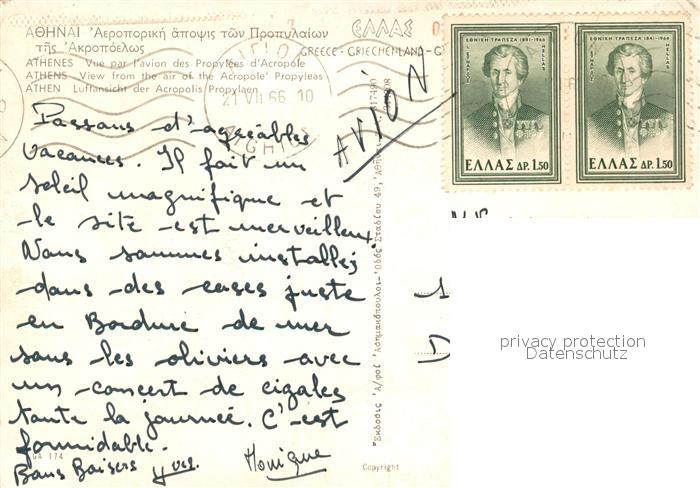 ΑΘΗΝΑΙ Ἀεροπορική ἄποψις τῶν Προπυλαίων
τῆς Ἀκροπόλεως
ATHENES Vue par l'avion des Propylées d'Acropole
ATHENS View from the air of the Acropole' Propyleas
ATHEN Luftansicht der Acropolis Propylaen
ΕΛΛΑΣ
GREECE - GRIECHENLAND - G
ΑΙΓΙΟΝ
21 VII 66. 10
AIGHION
AVION
ΕΘΝΙΚΗ ΤΡΑΠΕΖΑ 1841-1966
HELLAS
ΕΛΛΑΣ ΔΡ. 1.50
ΕΘΝΙΚΗ ΤΡΑΠΕΖΑ 1841-1966
HELLAS
ΕΛΛΑΣ ΔΡ. 1.50
Passons d'agréables
vacances. Il fait un
soleil magnifique et
le site est merveilleux.
Nous sommes installés
dans des cases juste
en Bordure de mer
sous les oliviers avec
un concert de cigales
toute la journée. C'est
formidable.
GA 174
Bons Baisers Yves. Monique
Copyright
privacy protection
Datenschutz